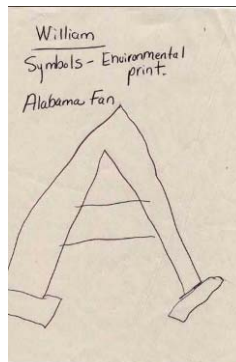 William
Symbols - Environmental
print.
Alabama Fan
A